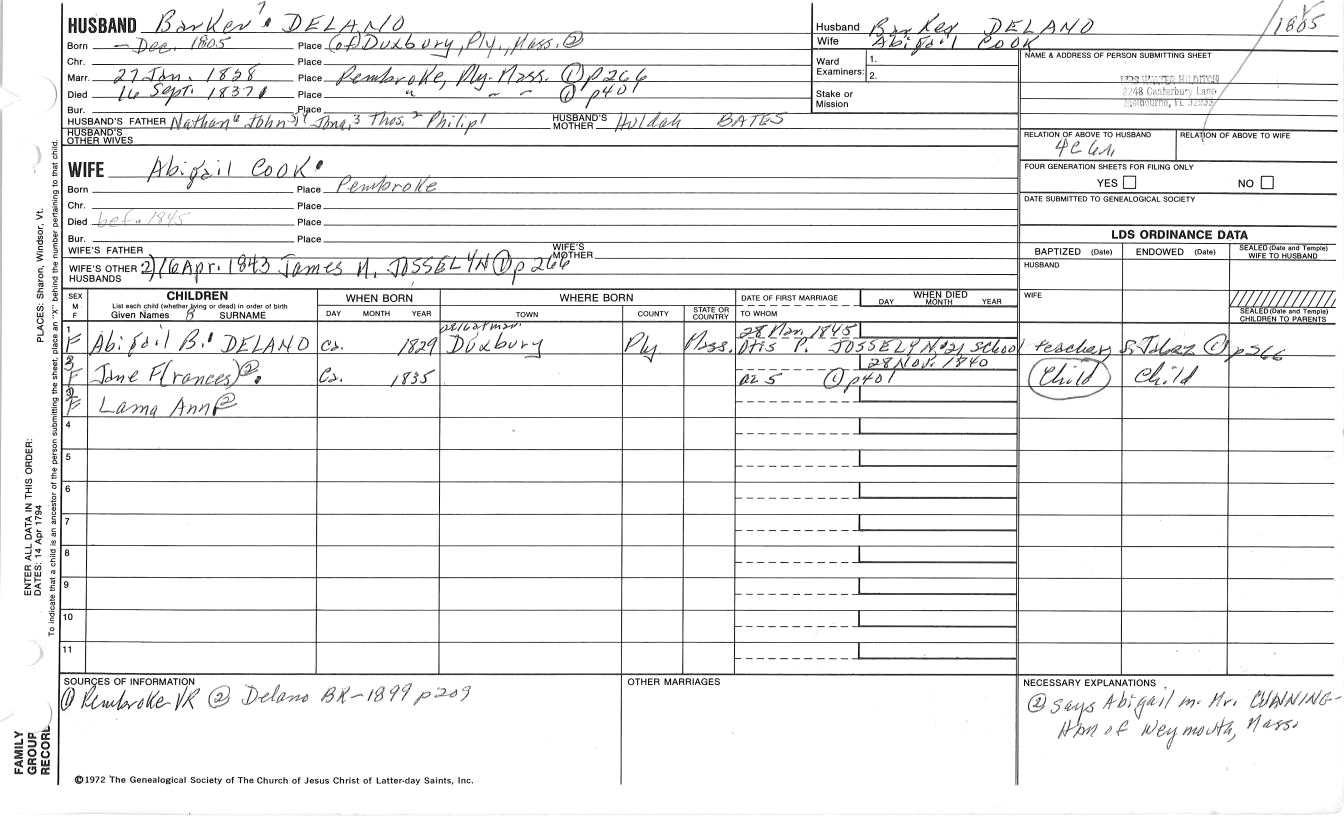 HUSBAND Barker 7 DELANO
Born – Dec. 1805 Place (of) Duxbury, Ply., Mass. ②
Chr. Place
Marr. 27 Jan. 1828 Place Pembroke, Ply. Mass. ① p 266
Died 16 Sept. 1837 Place " – – ① p401
Bur. Place
HUSBAND'S FATHER Nathan 6 John 5, 4 Jona. 3 Thos. 2 Philip 1 HUSBAND'S MOTHER Huldah BATES
HUSBAND'S OTHER WIVES
WIFE Abigail COOK
Born Place Pembroke
Chr. Place
Died bef. 1845 Place
Bur. Place
WIFE'S FATHER WIFE'S MOTHER
WIFE'S OTHER HUSBANDS 2) 16 Apr. 1843 James H. JOSSELYN ① p 266
Husband Barker DELANO 1805
Wife Abigail COOK
Ward Examiners: 1.
2.
Stake or Mission
NAME & ADDRESS OF PERSON SUBMITTING SHEET
2748 Canterbury Lane
Melbourne, FL
RELATION OF ABOVE TO HUSBAND RELATION OF ABOVE TO WIFE
4C
FOUR GENERATION SHEETS FOR FILING ONLY
YES NO
DATE SUBMITTED TO GENEALOGICAL SOCIETY
LDS ORDINANCE DATA
BAPTIZED (Date) ENDOWED (Date) SEALED (Date and Temple) WIFE TO HUSBAND
HUSBAND
WIFE
SEALED (Date and Temple) CHILDREN TO PARENTS
SEX M F CHILDREN List each child (whether living or dead) in order of birth Given Names SURNAME WHEN BORN DAY MONTH YEAR WHERE BORN TOWN COUNTY STATE OR COUNTRY DATE OF FIRST MARRIAGE TO WHOM WHEN DIED DAY MONTH YEAR
1 F Abigail B. DELANO ca. 1829 Duxbury Ply Mass. 28 1845
Otis P. JOSSELYN 21 School teacher, S. Jabez ① p266
F Jane F(rances) ② Ca. 1835 28 Nov. 1840
ae 5 ① p401 Child Child
F Ann ②
4
5
6
7
8
9
10
11
SOURCES OF INFORMATION
① Pembroke VR ② Delano BK-1899 p209
OTHER MARRIAGES
NECESSARY EXPLANATIONS
② says Abigail m. Mr. CUNNING-
HAM of Weymouth, Mass.
©1972 The Genealogical Society of The Church of Jesus Christ of Latter-day Saints, Inc.
FAMILY GROUP RECORD
ENTER ALL DATA IN THIS ORDER:
DATES: 14 Apr 1794
PLACES: Sharon, Windsor, Vt.
To indicate that a child is an ancestor of the person submitting the sheet, place an "X" behind the number pertaining to that child.